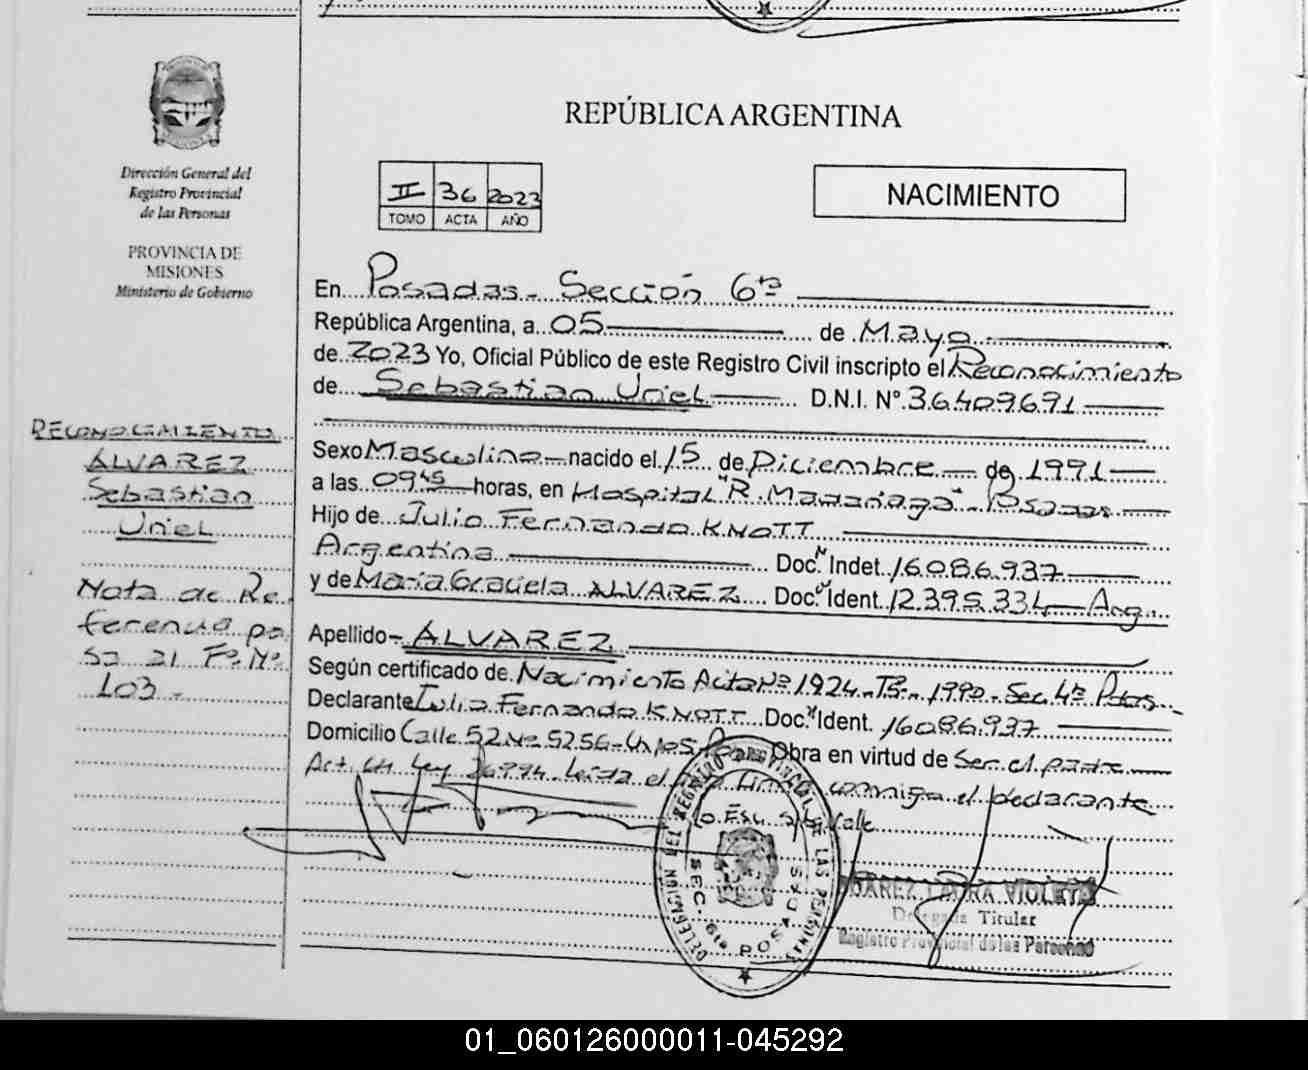 REPÚBLICA ARGENTINA
Dirección General del
Registro Provincial
de las Personas
PROVINCIA DE
MISIONES
Ministerio de Gobierno
II 36 2023
TOMO ACTA AÑO
NACIMIENTO
En Posadas - Sección 6ta
República Argentina, a 05 de Mayo
de 2023 Yo, Oficial Público de este Registro Civil inscripto el Reconocimiento
de Sebastian Uriel D.N.I. Nº 36409691
Sexo Masculino nacido el 15 de Diciembre de 1991
a las 09 45 horas, en Hospital "R. Madariaga" - Posadas
Hijo de Julio Fernando KNOTT
Argentina Doc. N Indet. 16.086.937
y de Maria Graciela ALVAREZ Doc. N Ident. 12.395.334 Arg.
Apellido - ÁLVAREZ
Según certificado de Nacimiento Acta Nº 1924 - Tº - 1990 - Sec. 4ta Pdas
Declarante Julio Fernando KNOTT Doc. N Ident. 16086.937
Domicilio Calle 52 Nº 5256 - Obra en virtud de Ser el padre
Art. Ley Leida el conmigo el declarante
RECONOCIMIENTO
ÁLVAREZ
Sebastian
Uriel
Nota de Re
ferencia pa
sa al Fº Nº
103 -
DELEGACION DEL REGISTRO PROVINCIAL DE LAS PERSONAS
SEC. 6ta POSADAS
JUAREZ LAURA VIOLETA
Delegada Titular
Registro Provincial de las Personas
01_060126000011-045292